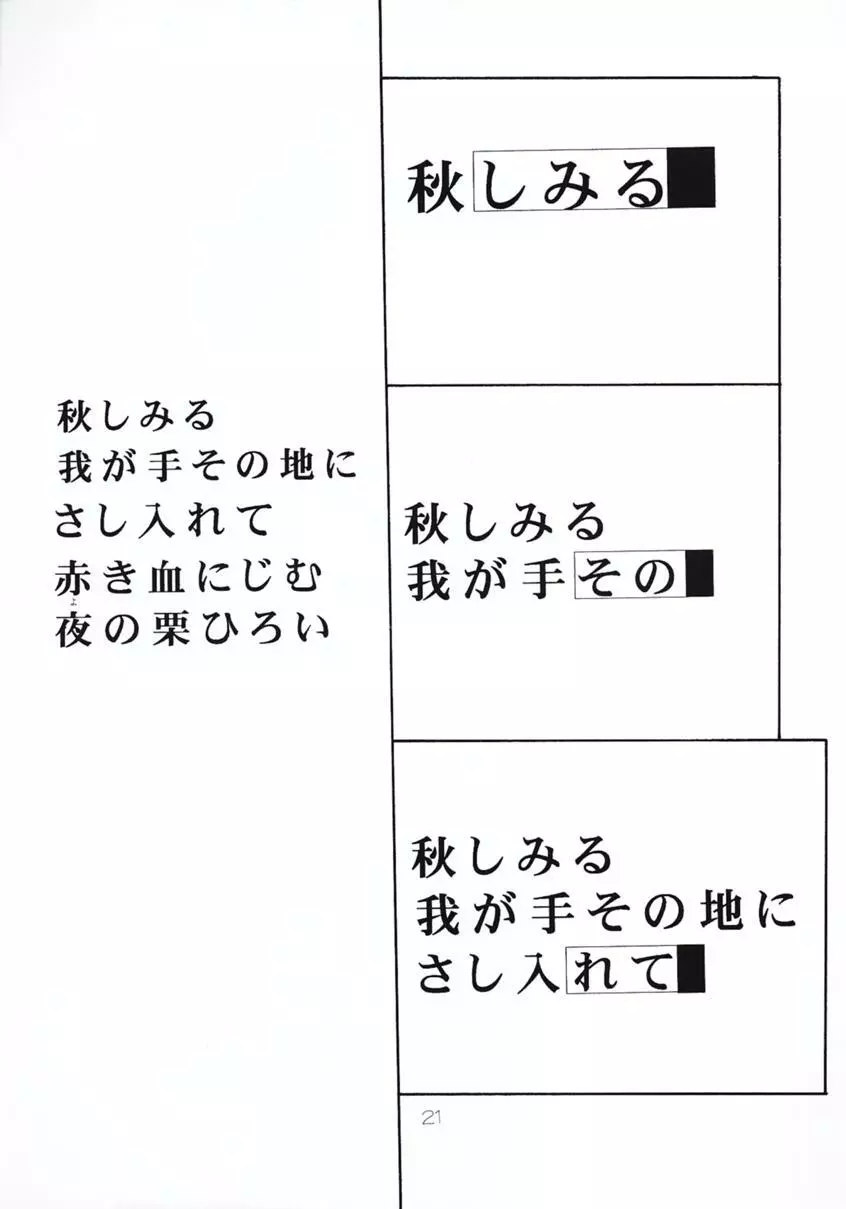 秋しみる
秋しみる
我が手その
秋しみる
我が手その地に
さし入れて
秋しみる
我が手その地に
さし入れて
赤き血にじむ
よ
夜の栗ひろい
21